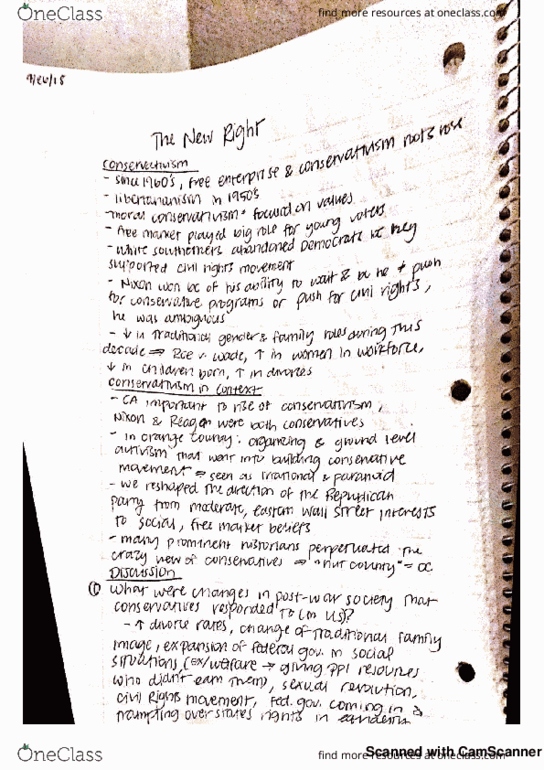 OneClass
find more resources at oneclass.com
9/26/18
The New Right
Conservativism
- since 1960's, free enterprise & conservativism roots rose
- libertarianism in 1950's
- "moral conservativism" focused on values
- free market played big role for young voters
- white southerners abandoned Democrats bc they
supported civil rights movement
- Nixon won bc of his ability to wait & push
for conservative programs or push for civil rights,
he was ambiguous
- ↓ in traditional gender & family roles during this
decade ⇒ Roe v. Wade, ↑ in women in workforce,
↓ in children born, ↑ in divorces
Conservativism in Context
- CA important to rise of conservativism,
Nixon & Reagan were both conservatives
- in Orange County: organizing & ground level
activism that went into building conservative
movement ⇒ seen as irrational & paranoid
- we reshaped the direction of the Republican
party from moderate, eastern Wall Street interests
to social, free market beliefs
- many prominent historians perpetuated the
crazy view of conservatives ⇒ "nut country" = OC
Discussion
① What were changes in post-war society that
conservatives responded to (in US)?
- ↑ divorce rates, change of traditional family
image, expansion of federal gov. in social
situations (ex/welfare → giving ppl resources
who didn't earn them), sexual revolution,
civil rights movement, fed. gov. coming in &
trampling over states rights in
OneClass
find more resources at oneclass.com
Scanned with CamScanner